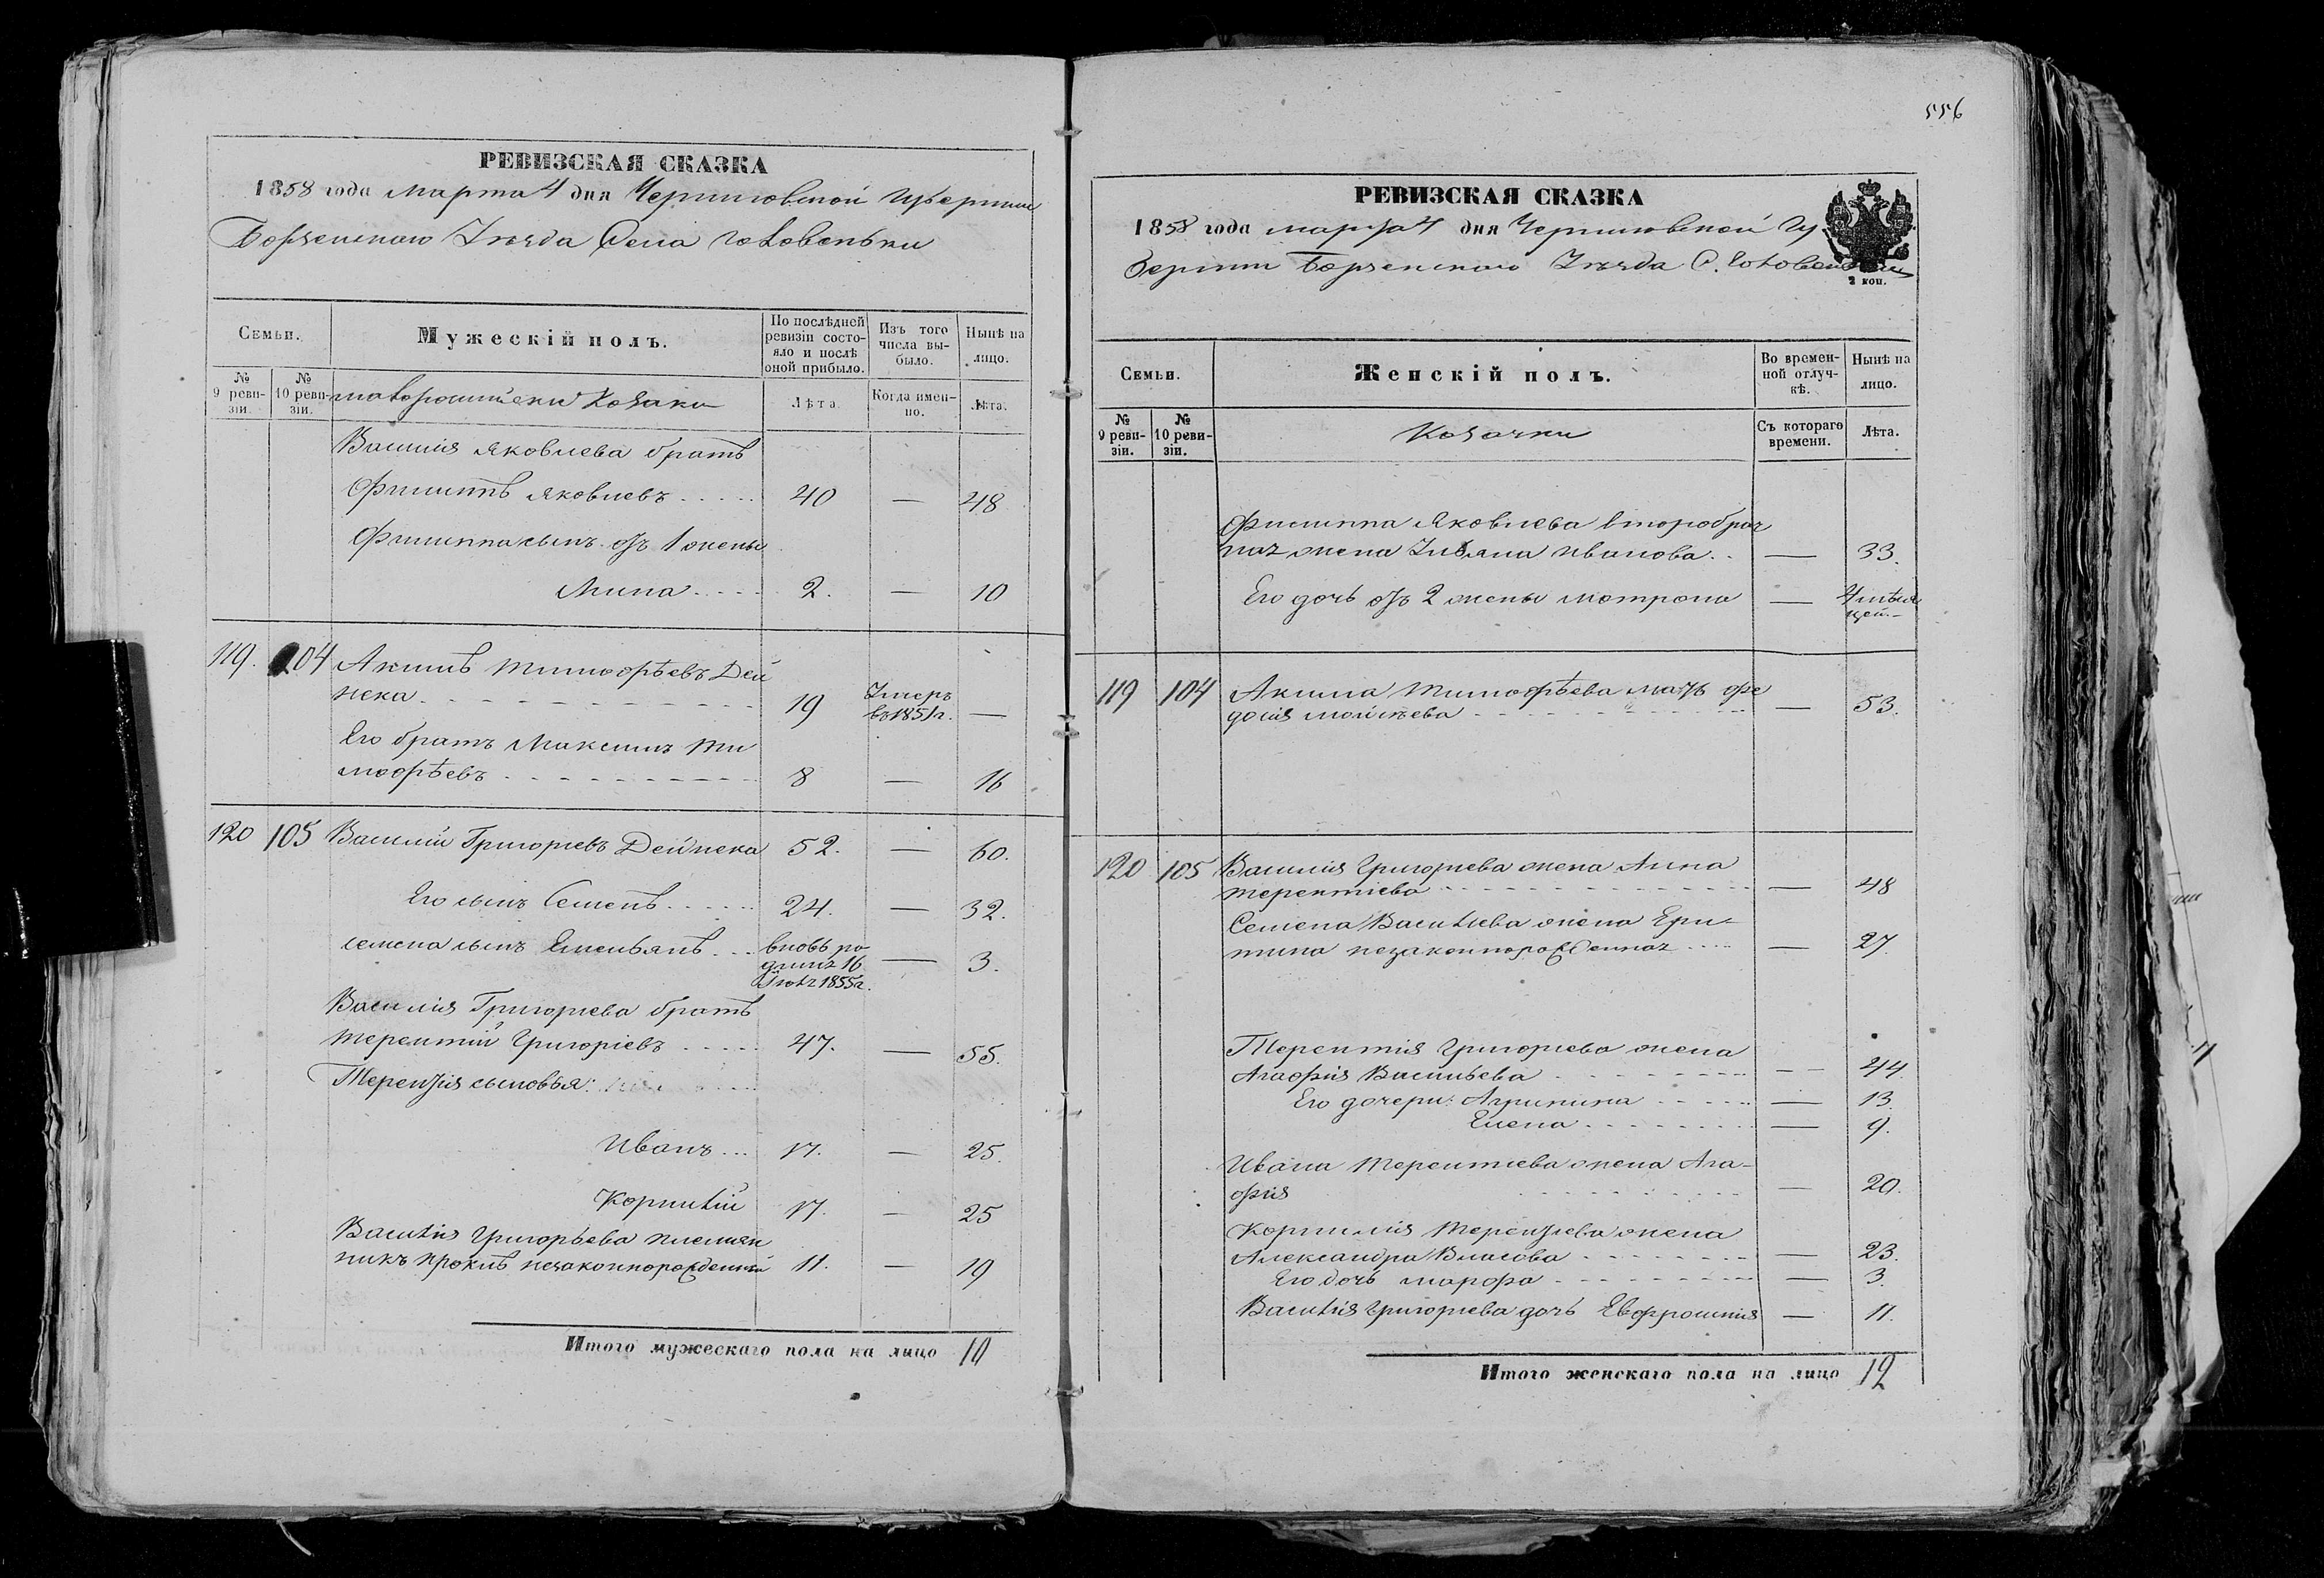 РЕВИЗСКАЯ СКАЗКА
1858 года марта 4 дня Черниговской Губернии
Борзенскаго Уезда Села
Семьи.
Мужескій полъ.
По послѣдней ревизіи состояло и послѣ оной прибыло.
Изъ того числа выбыло.
Нынѣ на лицо.
№ 9 ревизіи.
№ 10 ревизіи.
Козаки
Лѣта.
Когда именно.
Лѣта.
Василія Яковлева братъ
Филиппъ Яковлевъ 40 — 48
Филиппа сынъ отъ 1 жены
Мина 2. — 10
119. 104 Акимъ Тимофѣевъ Дей
нека 19 Умеръ въ 1851 г. —
Его братъ Максимъ Ти
мофѣевъ 8 — 16
120 105 Василій Григоріевъ Дейнека 52. — 60.
Его сынъ Семенъ 24. — 32.
Семена сынъ Емельянъ вновь ро
дился 16 1855 г. — 3.
Василія Григоріева братъ
Терентій Григоріевъ 47. — 55.
Терентія сыновья:
Иванъ 17. — 25.
Корнилій 17. — 25
Василія Григорьева племян
никъ Прокипъ незаконнорожденный 11. — 19
Итого мужескаго пола на лицо 10
556
РЕВИЗСКАЯ СКАЗКА
1858 года марта 4 дня Черниговской Гу
берніи Борзенскаго Уезда С.
2 коп.
Семьи.
Женскій полъ.
Во временной отлучкѣ.
Нынѣ на лицо.
№ 9 ревизіи.
№ 10 ревизіи.
Козачки
Съ котораго времени.
Лѣта.
Филиппа Яковлева второбрач
ная жена Ульяна Иванова — 33.
Его дочь отъ 2 жены Мотрона — 4 мѣся
цей
119 104 Акима Тимофѣева мать Фе
досія Моисѣева — 53.
120 105 Василія Григоріева жена Анна
Терентіева — 48
Семена Василіева жена Хри
тина незаконнорожденная — 27.
Терентія Григоріева жена
Агафія Васильева — 44.
Его дочери: Агрипина — 13.
Елена — 9.
Ивана Терентіева жена Ага-
фія — 20.
Корнилія Терентіева жена
Александра Власова — 23.
Его дочь Марфа — 3.
Василія Григоріева дочь Евфросинія — 11.
Итого женскаго пола на лицо 12